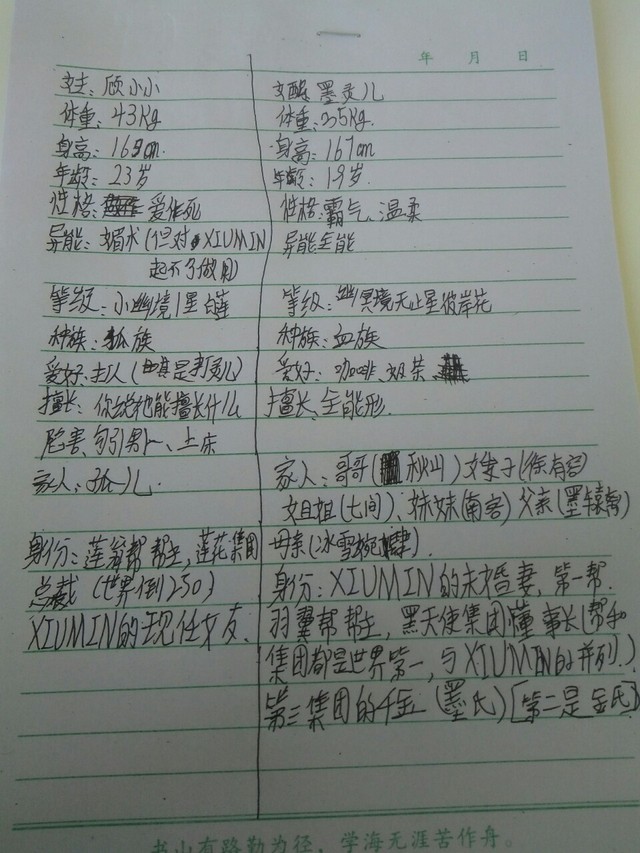 年 月 日
女主：顾小小
体重：43kg
身高：169cm
年龄：23岁
性格：爱作死
异能：媚术（但对XIUMIN
起不了做用）
等级：小幽境1星
种族：狐族
爱好：打人（尤其是打灵儿）
擅长：你说她能擅长什么
陷害、勾引男人、上床
家人：孤儿
身份：莲翁帮帮主，莲花集团
总裁（世界倒250）
XIUMIN的现任女友、
女配：墨灵儿
体重：35kg.
身高：167cm
年龄：19岁.
性格：霸气、温柔
异能：全能
等级：幽冥境无止星彼岸花
种族：血族
爱好：咖啡、奶茶、
擅长：全能形.
家人：哥哥（秋山）
姐姐（七间）、妹妹（南宫）父亲（墨）
母亲（冰雪）.
身份：XIUMIN的未婚妻，第一帮
羽翼帮帮主，黑天使集团懂事长（帮和
集团都是世界第一，与XIUMIN的并列.）
第三集团的千金（墨氏）[第二是金氏]
书山有路勤为径，学海无涯苦作舟。